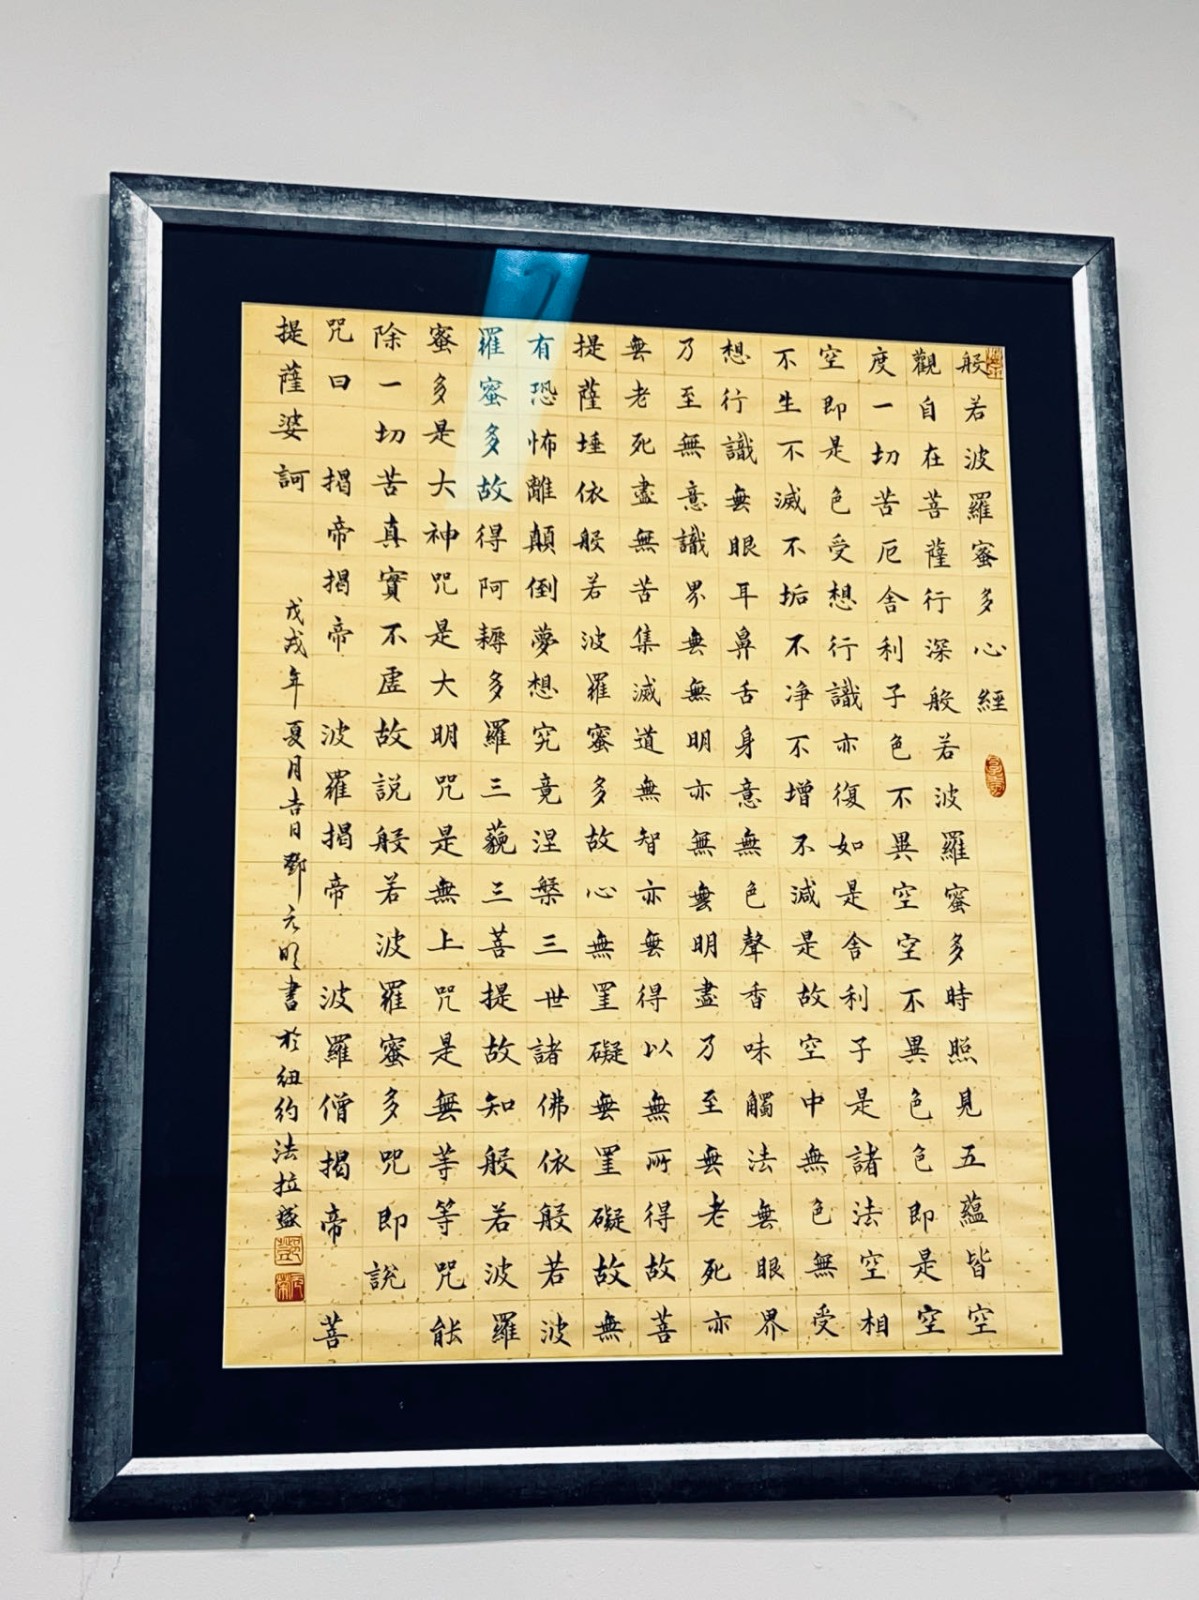 般若波羅蜜多心經
觀自在菩薩行深般若波羅蜜多時照見五蘊皆空
度一切苦厄舍利子色不異空空不異色色即是空
空即是色受想行識亦復如是舍利子是諸法空相
不生不滅不垢不净不增不減是故空中無色無受
想行識無眼耳鼻舌身意無色聲香味觸法無眼界
乃至無意識界無無明亦無無明盡乃至無老死亦
無老死盡無苦集滅道無智亦無得以無所得故菩
提薩埵依般若波羅蜜多故心無罣礙無罣礙故無
有恐怖離顛倒夢想究竟涅槃三世諸佛依般若波
羅蜜多故得阿耨多羅三藐三菩提故知般若波羅
蜜多是大神咒是大明咒是無上咒是無等等咒能
除一切苦真實不虛故說般若波羅蜜多咒即説
咒曰 揭帝揭帝 波羅揭帝 波羅僧揭帝 菩
提薩婆訶
戊戌年夏月吉日鄧元明書於紐約法拉盛